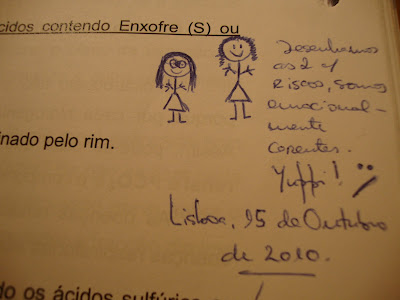 cidos contendo Enxofre (S) ou
Desenhamos
as 2 c/
Riscos, somos
emocional-
mente
carentes.
inado pelo rim.
Yuppi!
Lisboa, 15 de Outubro
de 2010.
do os ácidos sulfúric